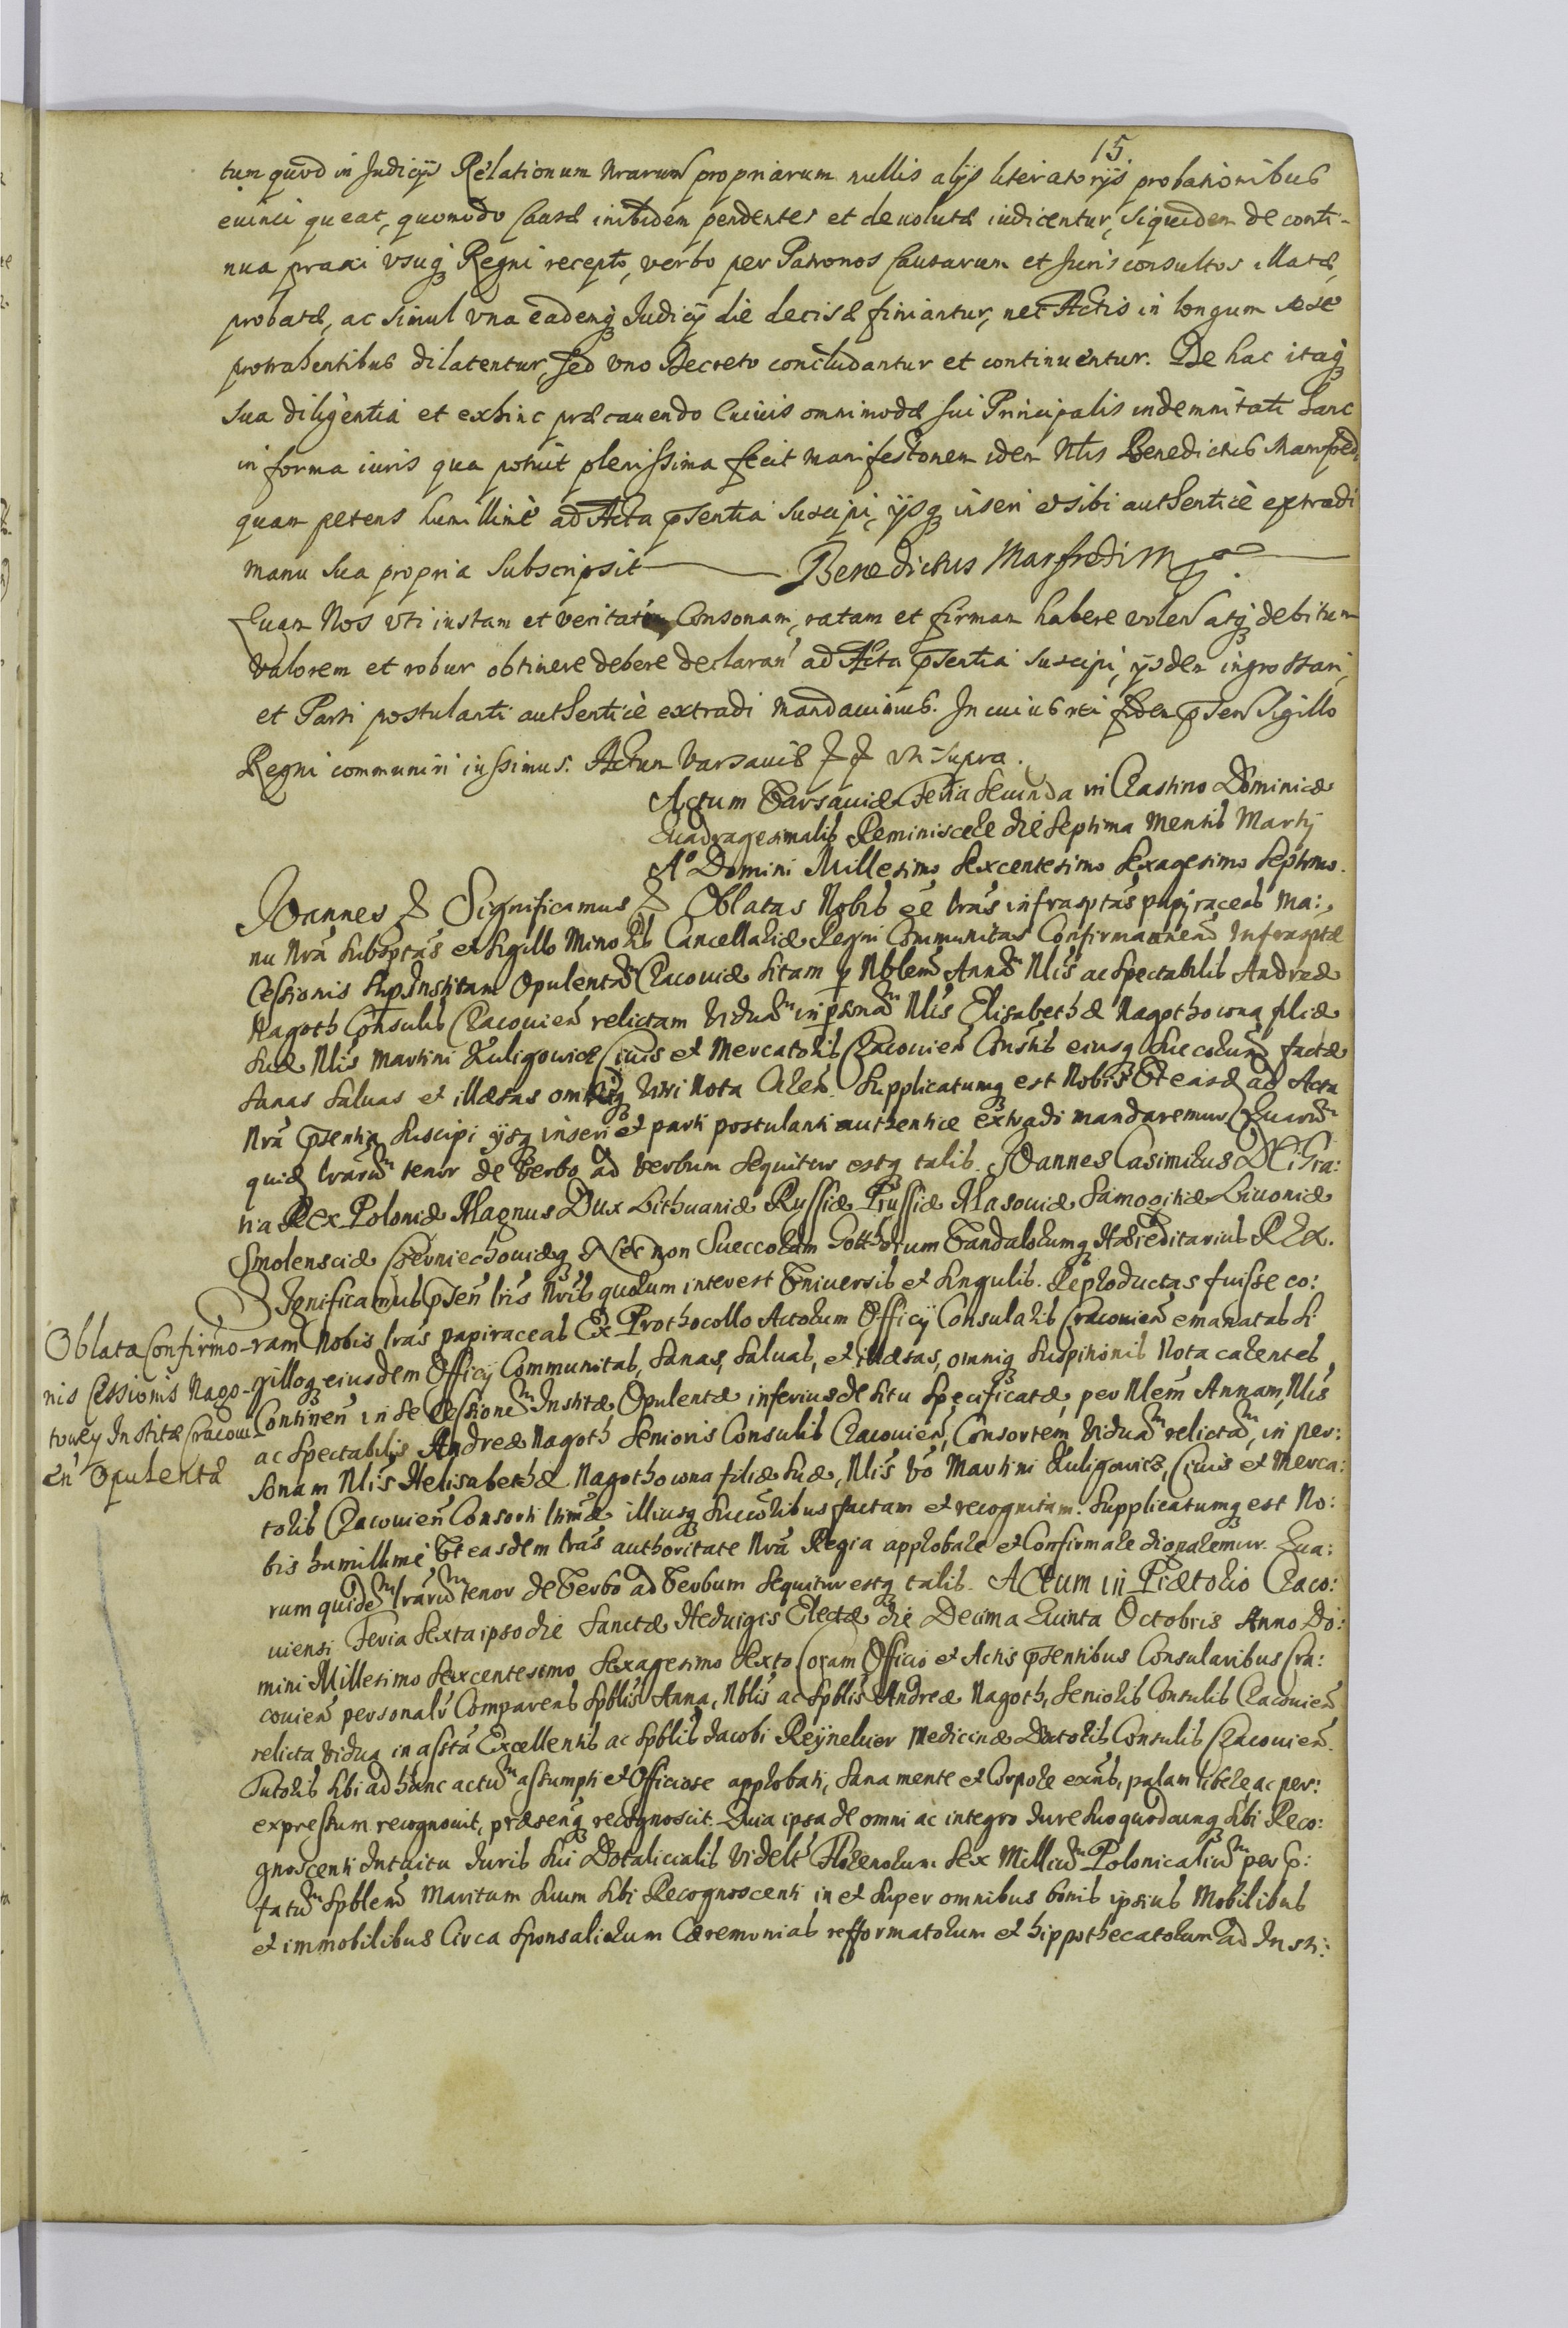 15.
tum quod in Judicijs Relationum Nrarum propriarum nullis alijs literatorijs probationibus
euinci queat, quomodo Causæ inibidem pendentes et deuolutæ iudicentur, siquidem de conti-
nua praxi vsuq Regni recepto, verbo per Patronos Causarum et Jurisconsultos illatæ,
probatæ, ac simul vna eademq Judicij die decisæ finiantur, nec Actis in longum sese
protrahentibus dilatentur, sed vno Decreto concludantur et continuentur. De hac itaq
sua diligentia et exhinc præcauendo cuiuis omnimodæ sui Principalis indemnitati hanc
in forma iuris qua potuit plenissima fecit manifestonem idem Nlis Benedictus Manfredi,
quam petens humillimè ad Acta pntia suscipi, ijsq inseri et sibi authenticè extradi
manu sua propria subscripsit Benedictus Manfredi M
Quam Nos vti iustam et veritati consonam, ratam et firmam habere volen atq debitum
valorem et robur obtinere debere declaran ad Acta pntia suscipi, ijsdem ingrossari,
et Parti postulanti authenticè extradi mandauimus. In cuius rei fidem psen Sigillo
Regni communiri iussimus. Actum Varsauiæ vti supra.
Actum Varsauiæ Feria Secunda in Crastino Dominicæ
Quadragesimalis Reminiscere die Septima Mensis Martij
Ao Domini Millesimo Sexcentesimo Sexagesimo Septimo.
Joannes & Significamus & Oblatas Nobis ee lras infrasptas papyraceas Ma:
nu Nra subsptas et sigillo Minoris Cancellariæ Regni Communitas Confirmaonem Infrasptæ
Cessionis sup Institam Opulentam Cracouiæ sitam p Nblem Annam Nlis ac Spectabilis Andreæ
Nagoth Consulis Cracouien relictam viduam in psonam Nlis Elisabethæ Nagothowna filiæ
suæ Nlis Martini Kuligowicz Ciuis et Mercatoris Cracouien Consrtis eiusq succorum factæ
sanas saluas et illæsas omniq vitii nota caren. Supplicatumq est Nobis Vt easd ad Acta
Nra psentia suscipi ijsq inseri et parti postulanti authentice extradi mandaremus Quarum
quid lrarum tenor de verbo ad verbum sequitur estq talis. Joannes Casimirus Dei Gra:
tia Rex Poloniæ Magnus Dux Lithuaniæ Russiæ Prussiæ Masouiæ Samogitiæ Liuoniæ
Smolensciæ Czerniechouiæq Nec non Sueccorum Gotthorum Vandalorumq Hæreditarius Rex.
Significamus psen lris Nris quorum interest Vniuersis et singulis. Reproductas fuisse co:
ram Nobis lras papiraceas Ex Prothocollo Actorum Officij Consularis Cracouien emanatas si
gilloq eiusdem Officij Communitas, sanas, saluas, et illæsas, omniq suspitionis nota carentes
Continen in se Cessionem Institæ Opulentæ inferius de situ specificatæ, per Nlem Annam, Nlis
ac Spectabilis Andreæ Nagoth Senioris Consulis Cracouien, Consortem viduam relictam, in per:
sonam Nlis Helisabethæ Nagothowna filiæ suæ, Nlis vo Martini Kuligowicz, Ciuis et Merca:
toris Cracouien Consorti ltimæ illiusq succoribus factam et recognitam. Supplicatumq est No:
bis humillime Vt easdem lras authoritate Nra Regia approbare et Confirmare dignaremur. Qua:
rum quidem lrarum tenor de Verbo ad Verbum sequitur estq talis. Actum in Prætorio Craco:
uiensi Feria Sexta ipso die Sanctæ Heduigis Electæ die Decima Quinta Octobris Anno Do:
mini Millesimo Sexcentesimo Sexagesimo Sexto Coram Officio et Actis psentibus Consularibus Cra:
couien personalr Comparens Spblis Anna, Nblis ac Spblis Andreæ Nagoth, Senioris Consulis Cracouien
relicta vidua in assta Excellentis ac Spblis Jacobi Reijnekier Medicinæ Doctoris Consulis Cracouien.
Tutoris sibi ad hunc actum assumpti et Officiose approbati, sana mente et Corpore exns, palam libere ac per:
expressum recognouit, præsenq recognoscit. Quia ipsa de omni ac integro Jure suo quodcunq sibi Reco:
gnoscenti Intuitu Juris sui Dotalicialis videlt Florenorum sex Millium Polonicalium per p:
fatum Spblem Maritum suum sibi Recognoscenti in et super omnibus bonis ipsius Mobilibus
et immobilibus Circa Sponsaliorum Cæremonias refformatorum et hippothecatorum ad Insti:
Oblata Confirmo-
nis Cessionis Nago-
towey Institæ Cracoui
en Opulentæ